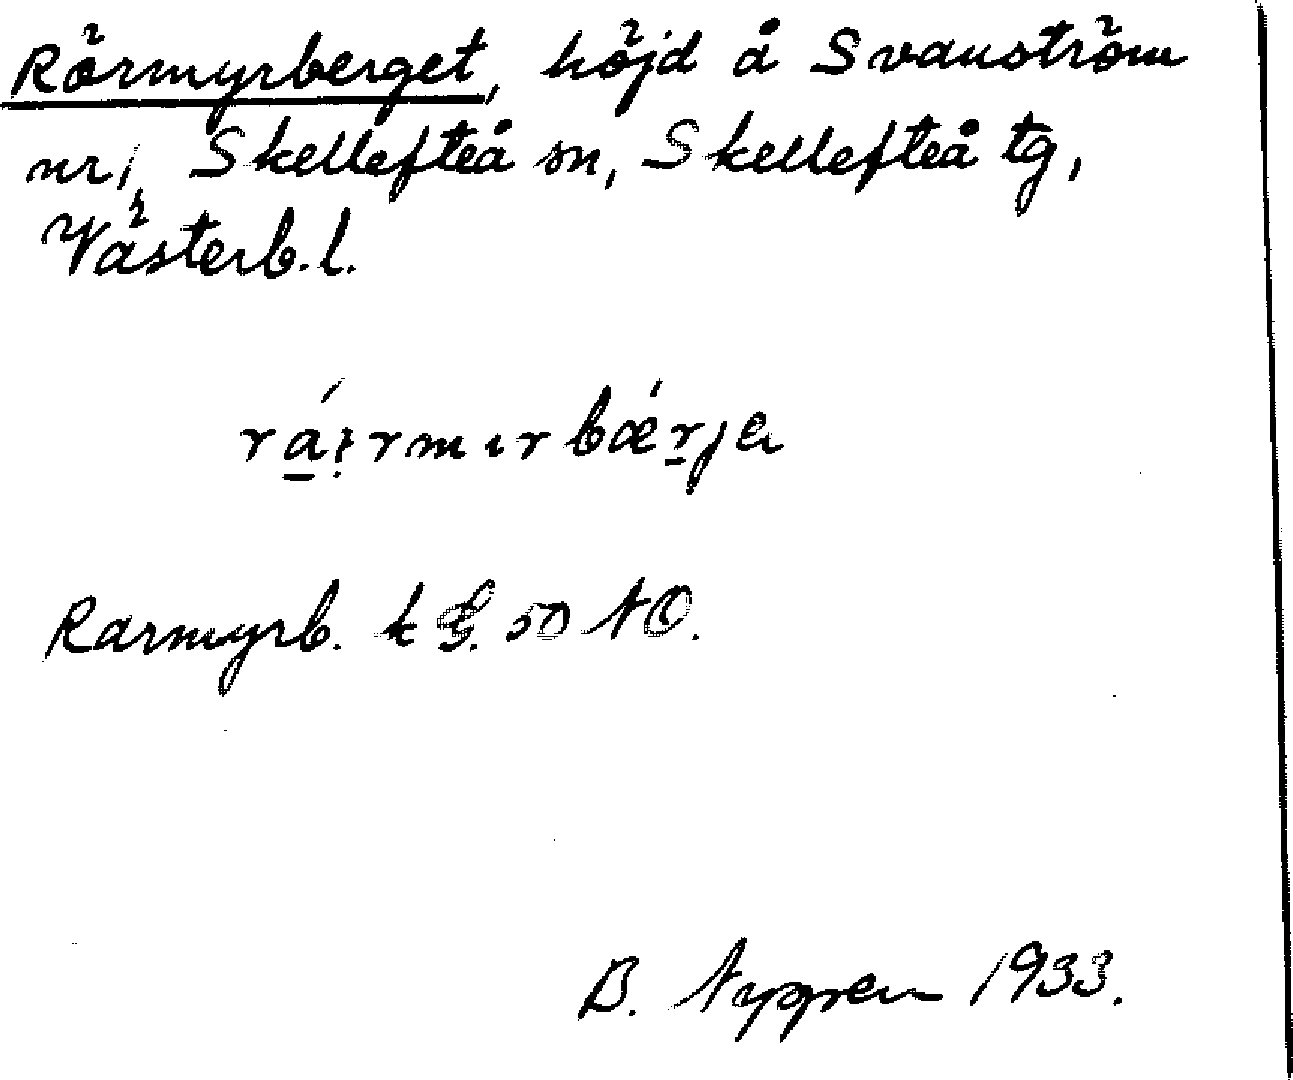 Rörmyrberget, höjd å Svanström
nr 1, Skellefteå sn, Skellefteå tg,
Västerb. l.
rá̱:rmırbǽr̠ja
Rarmyrb. k G. 50 NO.
B. Nygren 1933.